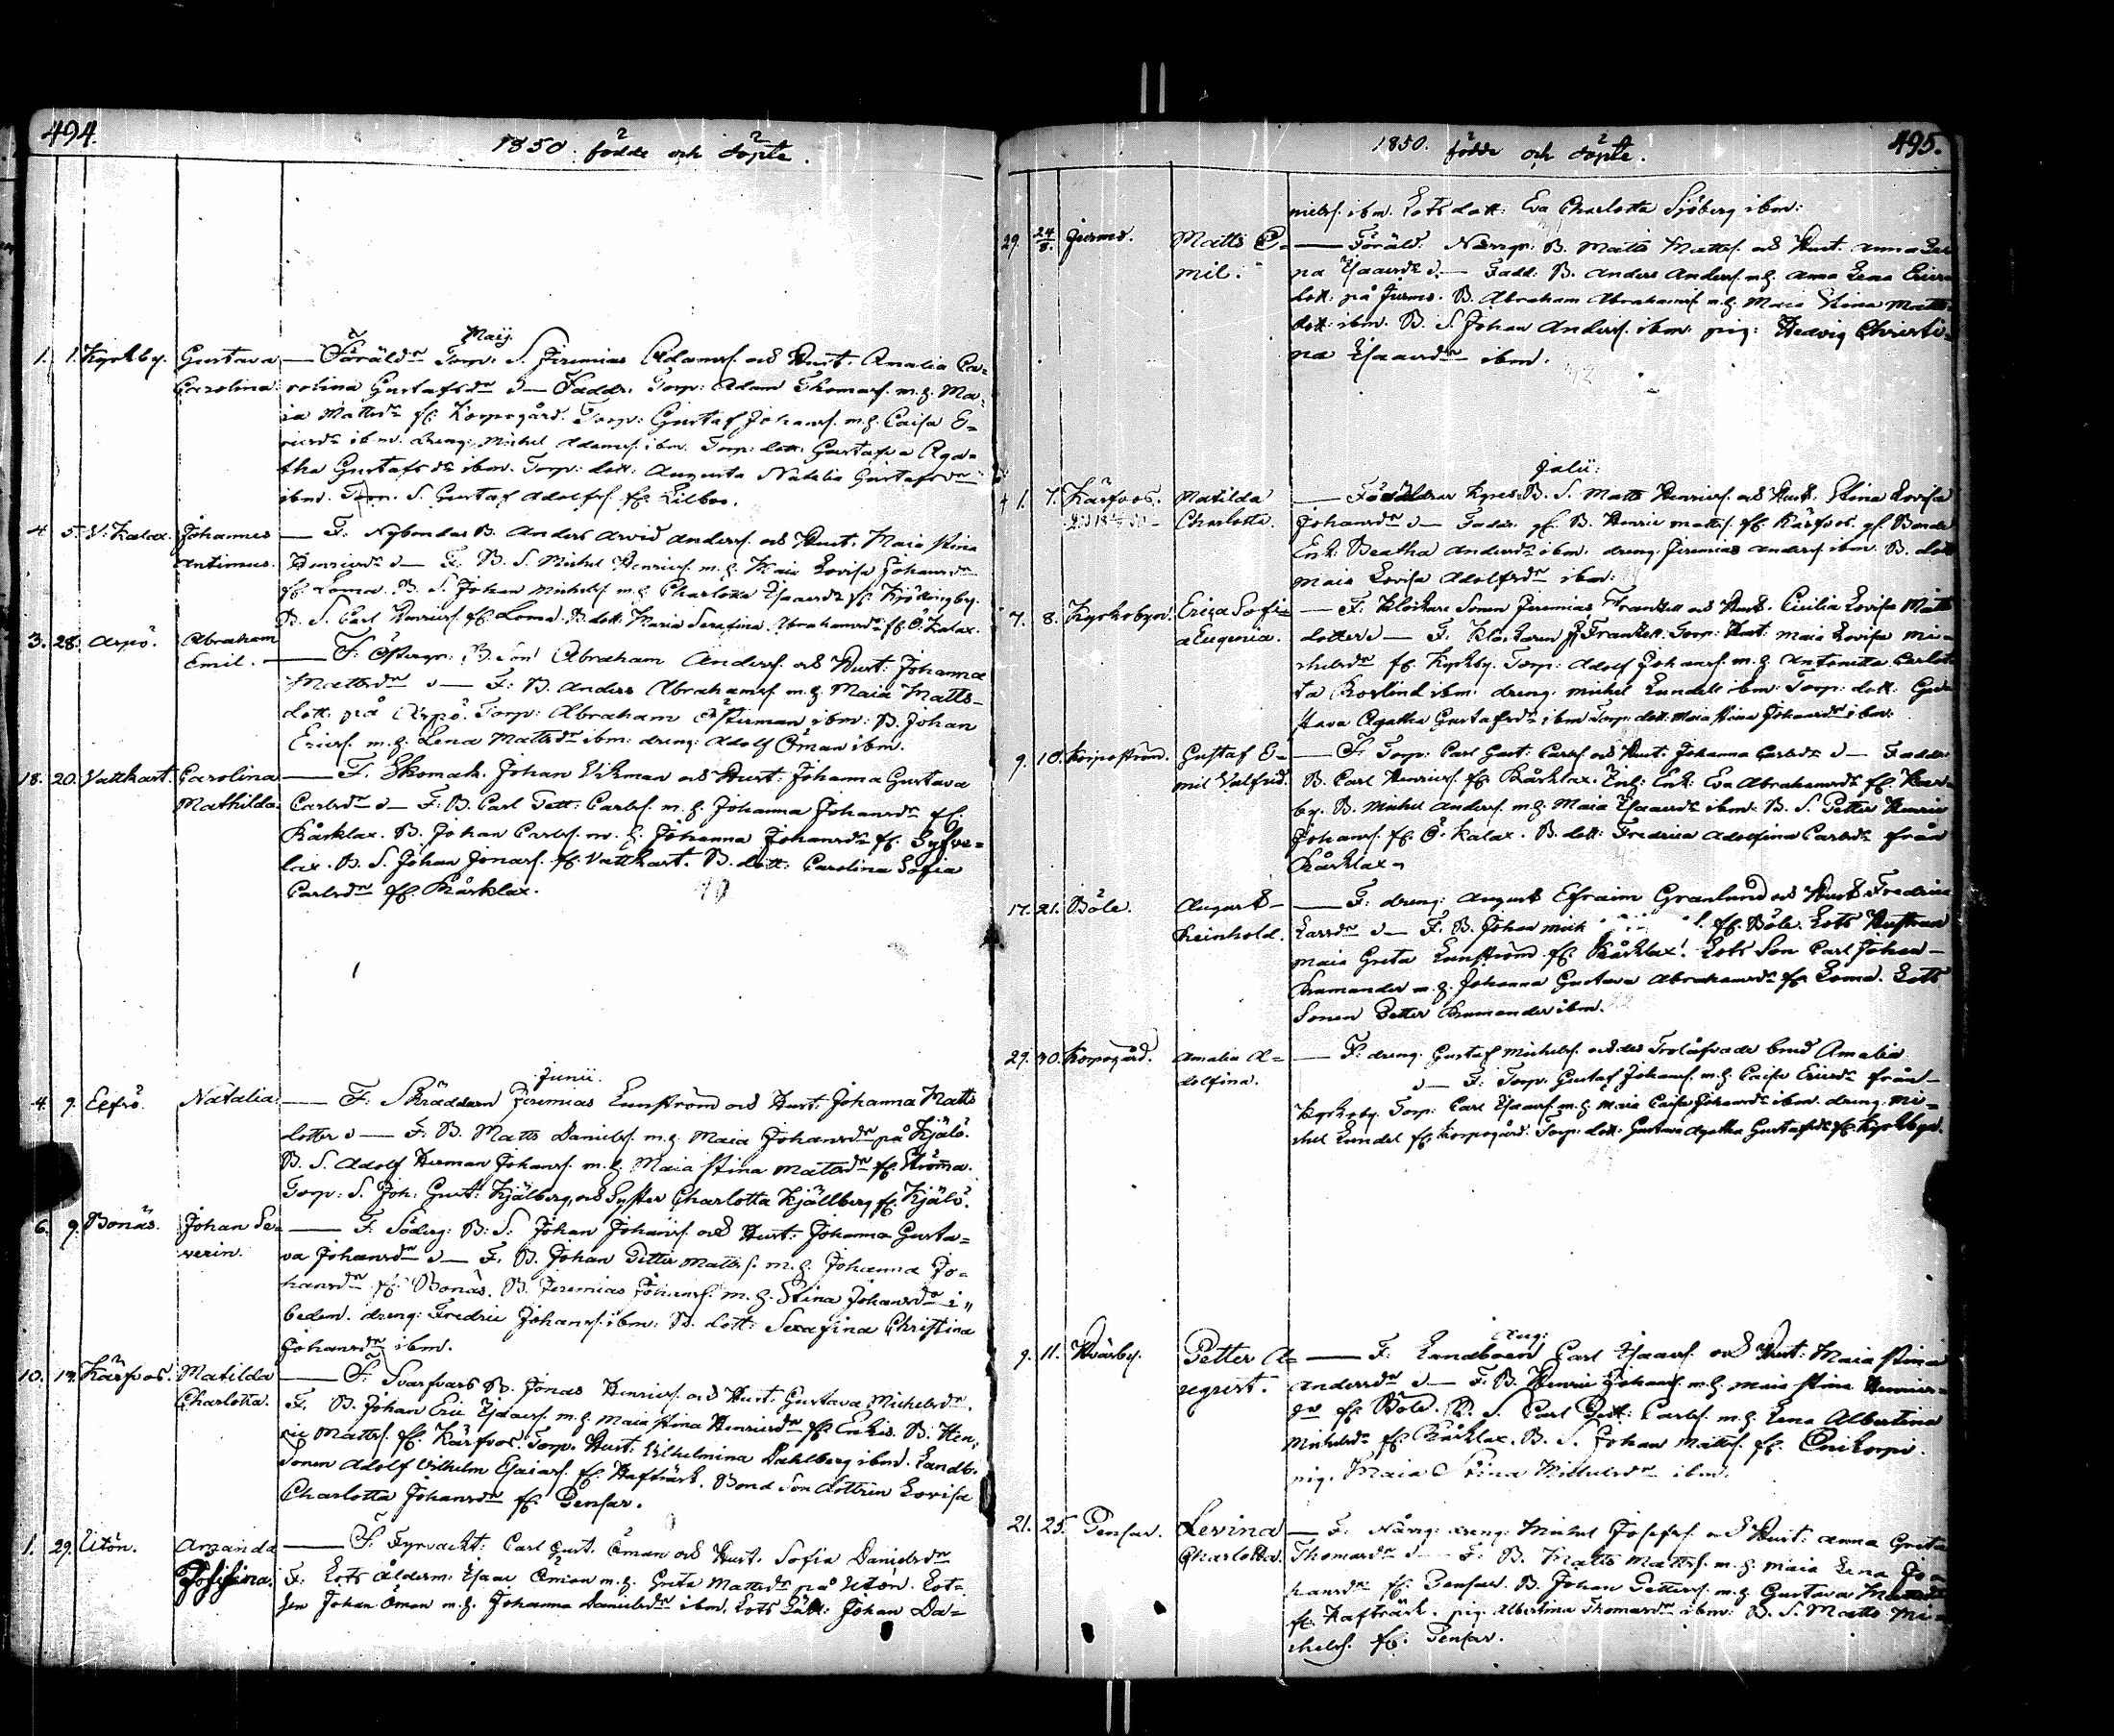 494.
1850. födde och döpte.
Maij
1. 1. Kyrkby. Gustava — Föräldr Torp: S. Jeremias Adamsf. och Hust: Amalia Ca=
Carolina rolina Gustafsdr — Faddr. Torp: Adam Thomasf. m. h. Ma=
ia Mattsdr fr. Korpogård. Torp: Gustaf Johansf. m. h. Caisa E=
ricsdr ibm. dreng: Michel Adamsf. ibm. Torp: dott: Gustafva Aga=
tha Gustafsdr ibm. Torp: dott: Augusta Natalia Gustafsdr
ibm. Torp. S. Gustaf Adolfsf. fr. Lilbos.
4 5. V: Kalax. Johannes — F. Nybondas B. Anders Arvid Andersf. och Hust: Maia Stina
Antimus. Henricsdr — F. B. S. Michel Henricsf. m. h. Maia Lovisa Johansdr
fr. Loma. B. S. Johan Michelsf. m. h. Charlotta Isaacsdr fr.
B. S. Carl Henricsf. fr. Loma. B. dott: Maria Serafina Abrahamsdr fr. Ö. Kalax.
3. 28. Aspö. Abraham — F: Östergr: B. Son Abraham Andersf. och Hust: Johanna
Emil. Mattsdr — F: B. Anders Abrahamsf. m. h. Maia Matts-
dott: på Aspö. Torp: Abraham Österman ibm: B. Johan
Ericsf. m. h. Lena Mattsdr ibm: dreng: Adolf Öman ibm.
18. 20. Vattkast. Carolina — F. Skomak. Johan Vikman och Hust: Johanna Gustava
Mathilda Carlsdr — F: B. Carl Pett: Carlsf. m. h. Johanna Johansdr fr.
Kårklax. B. Johan Carlsf. m. h. Johanna Johansdr fr. Syfve=
lax. B. S. Johan Jonasf. fr. Vattkast. B. dott: Carolina Sofia
Carlsdr fr. Kårklax.
Junii.
4. 9. Natalia — F: Skräddaren Jeremias Lunström och Hust: Johanna Matts
dotter — F. B. Matts Danielsf. m. h. Maia Johansdr på Kjälö.
B. S. Adolf Herman Johansf. m. h. Maia Stina Mattsdr fr. Strömma.
Torp: S. Joh: Gust: Kjälberg, och Syster Charlotta Kjällberg fr. Kjälö.
6. 9. Bonäs. Johan Se= — F. Söderg: B: S: Johan Johansf. och Hust: Johanna Gusta=
verin. va Johansdr — F. B. Johan Petter Mattsf. m. h. Johanna Jo=
hansdr fr. Bonäs. B. Jeremias Johansf. m. h. Stina Johansdr i"
bedem. dreng: Fredric Johansf. ibm: B. dott: Serafina Christina
Johansdr ibm.
10. Kärfvos. Matilda — F. Svarfvars B. Jonas Henricsf. och Hust: Gustava Michelsdr.
Charlotta. F. B. Johan Eric Isaacsf. m. h. Maia Stina Henricsdr fr. Enkis. B. Hen=
ric Mattsf. fr. Kärfvos. Torp. Hust: Vilhelmina Dahlberg ibm. Landb.
Sonen Adolf Vilhelm Esaiasf. fr. Hafträsk. Bond Son dottren Lovisa
Charlotta Johansdr fr. Pensar.
1. 29. Utön. Amanda — F. Fyrvackt: Carl Gust. Öman och Hust. Sofia Danielsdr
Josefina. F. Lots ålderm: Isaac Öman m. h. Greta Mattsdr på Utön. Lot=
sen Johan Öman m. h. Johanna Danielsdr ibm. Lots Johan Da=
495.
1850. födde och döpte.
nielsf. ibm. Lots dott: Eva Charlotta Sjöberg ibm:
29. 24/8. Jurmo. Matts E= — Föräld. Norrgr: B. Matts Mattsf. och Hust. Anna Le
mil. na Isaacsdr — Fadd: B. Anders Andersf. m. h. Anna Lena Erics
dott: på Jurmo. B. Abraham Abrahamsf. m. h. Maia Stina Matts
dott: ibm. B. S. Johan Andersf. ibm. pig: Hedvig Christi=
na Isaacsdr ibm.
Julii:
1. 7. Kärfvos. Matilda — Föräldrar B. S. Matts Henricsf. och Hust: Stina Lovisa
Charlotta. Johansdr — Faddr. B. Henric Mattsf. fr. Kärfvos. Bonde
Enk. Beatha Andersdr ibm. dreng. Jeremias Andersf. ibm. B. dott
Maia Lovisa Adolfsdr ibm:
7. 8. Kyrkobyn. Erica Sofi= — F. Klockare Sonen Jeremias Frantzell och Hust. Cicilia Lovisa Matts
a Eugenia. dotter — F. Klockaren Frantzell. Torp: Hust: Maia Lovisa Mi=
chelsdr fr. Kyrkby. Torp: Adolf Johansf. m. h. Antonetta Carlot
ta Roslind ibm: dreng: Michel Lundell ibm: Torp: dott: Gu=
stava Agatha Gustafsdr ibm Torp: dott: Maia Stina Johansdr ibm:
9. 10. Korpoström. Gustaf E= — F. Torp: Carl Gust: Carlsf. och Hust: Johanna Carlsdr — Faddr.
mil Valfrid. B. Carl Henricsf. fr. Kårklax. Enk: Eva Abrahamsdr fr.
by. B. Michel Andersf. m. h. Maia Isaacsdr ibm: B. S. Petter Henric
Johansf. fr. Ö. Kalax. B. dott: Fredrica Adolfina Carlsdr från
Kårklax
17. 21. Böle. August — F: dreng: August Efraim Granlund och Hust. Fredrica
Reinhold. Larsdr — F. B. Johan Mich fr. Böle. Lots Hustrun
Maia Greta Lunström fr. Kårklax. Lots Son Carl Johan
Kumander m. h. Johanna Gustava Abrahamsdr fr. Loma. Lots
Sonen Petter Kumander ibm.
29. 30. Korpogård. Amalia A= — F. dreng. Gustaf Michelsf. och des Trolåfvade brud Amalia
dolfina. — F. Torp: Gustaf Johansf. m. h. Caisa Ericsdr från
Kyrkoby. Torp: Carl Isaacsf. m. h. Maia Caisa Johansdr ibm. dreng. Mi=
chel Lundel fr. Korpogård. Torp: dott: Gustava Agatha Gustafsdr fr. Kyrkbyn.
Aug:
9. 11. Petter A= — F. Landboen Carl Isaacsf. och Hust: Maia Stina
ugust. Andersdr — F. B. Henric Johansf. m. h. Maia Stina Henrics=
dr fr. Böle. B. S. Carl Pett: Carlsf. m. h. Lena Albertina
Michelsdr fr. Kårklax. B. S. Johan Mattsf. fr.
pig. Maia Stina Michelsdr ibm.
21. 25. Pensar. Levina — F. Norrg: dreng: Michel Josefsf. och Hust: Anna Greta
Charlotta. Thomasdr — F. B. Matts Mattsf. m. h. Maia Lena Jo=
hansdr fr. Pensar. B. Johan Pettersf. m. h. Gustava Mattsdr
fr. Hafträsk. pig. Albertina Thomasdr ibm: B. S. Matts Mi=
chelsf. fr. Pensar.